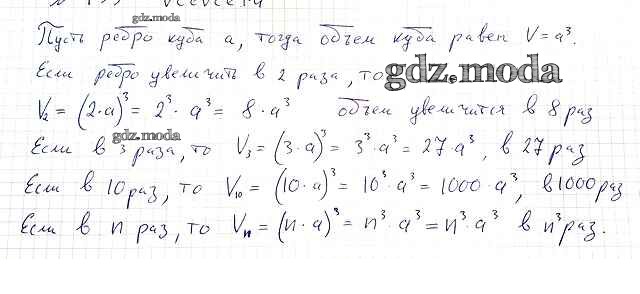 gdz.moda
Пусть ребро куба a, тогда объем куба равен V = a³.
Если ребро увеличить в 2 раза, то gdz.moda
V₂ = (2·a)³ = 2³ · a³ = 8 · a³ объем увеличится в 8 раз
gdz.moda
Если в 3 раза, то V₃ = (3·a)³ = 3³·a³ = 27·a³, в 27 раз
Если в 10 раз, то V₁₀ = (10·a)³ = 10³·a³ = 1000·a³, в 1000 раз
Если в n раз, то Vₙ = (n·a)³ = n³·a³ = n³·a³ в n³ раз.